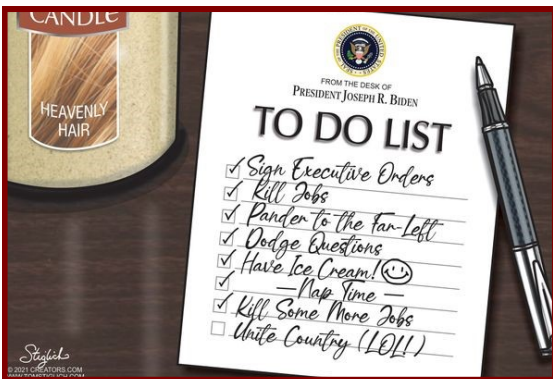 CANDLE
HEAVENLY
HAIR
FROM THE DESK OF
PRESIDENT JOSEPH R. BIDEN
TO DO LIST
Sign Executive Orders
Kill Jobs
Pander to the Far-Left
Dodge Questions
Have Ice Cream!
— Nap Time —
Kill Some More Jobs
Unite Country (LOL!)
Stiglich
© 2021 CREATORS.COM
WWW.TOMSTIGLICH.COM